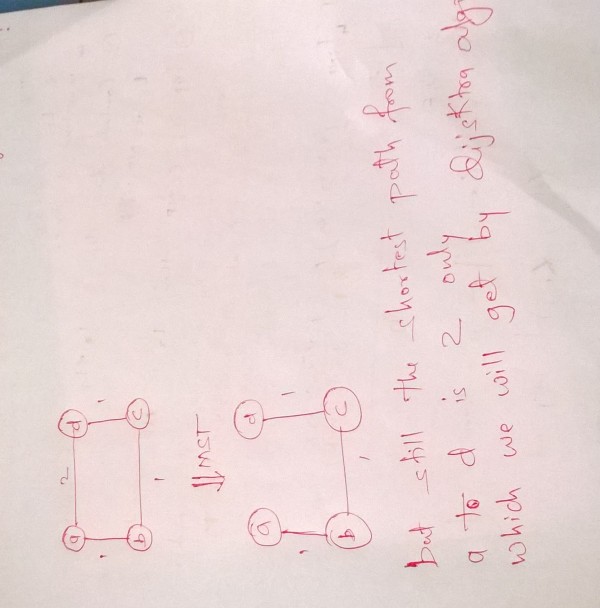 a 2 d
1 1
b 1 c
⇓ MST
a d
1 1
b 1 c
but still the shortest path from
a to d is 2 only
which we will get by Dijsktra algo